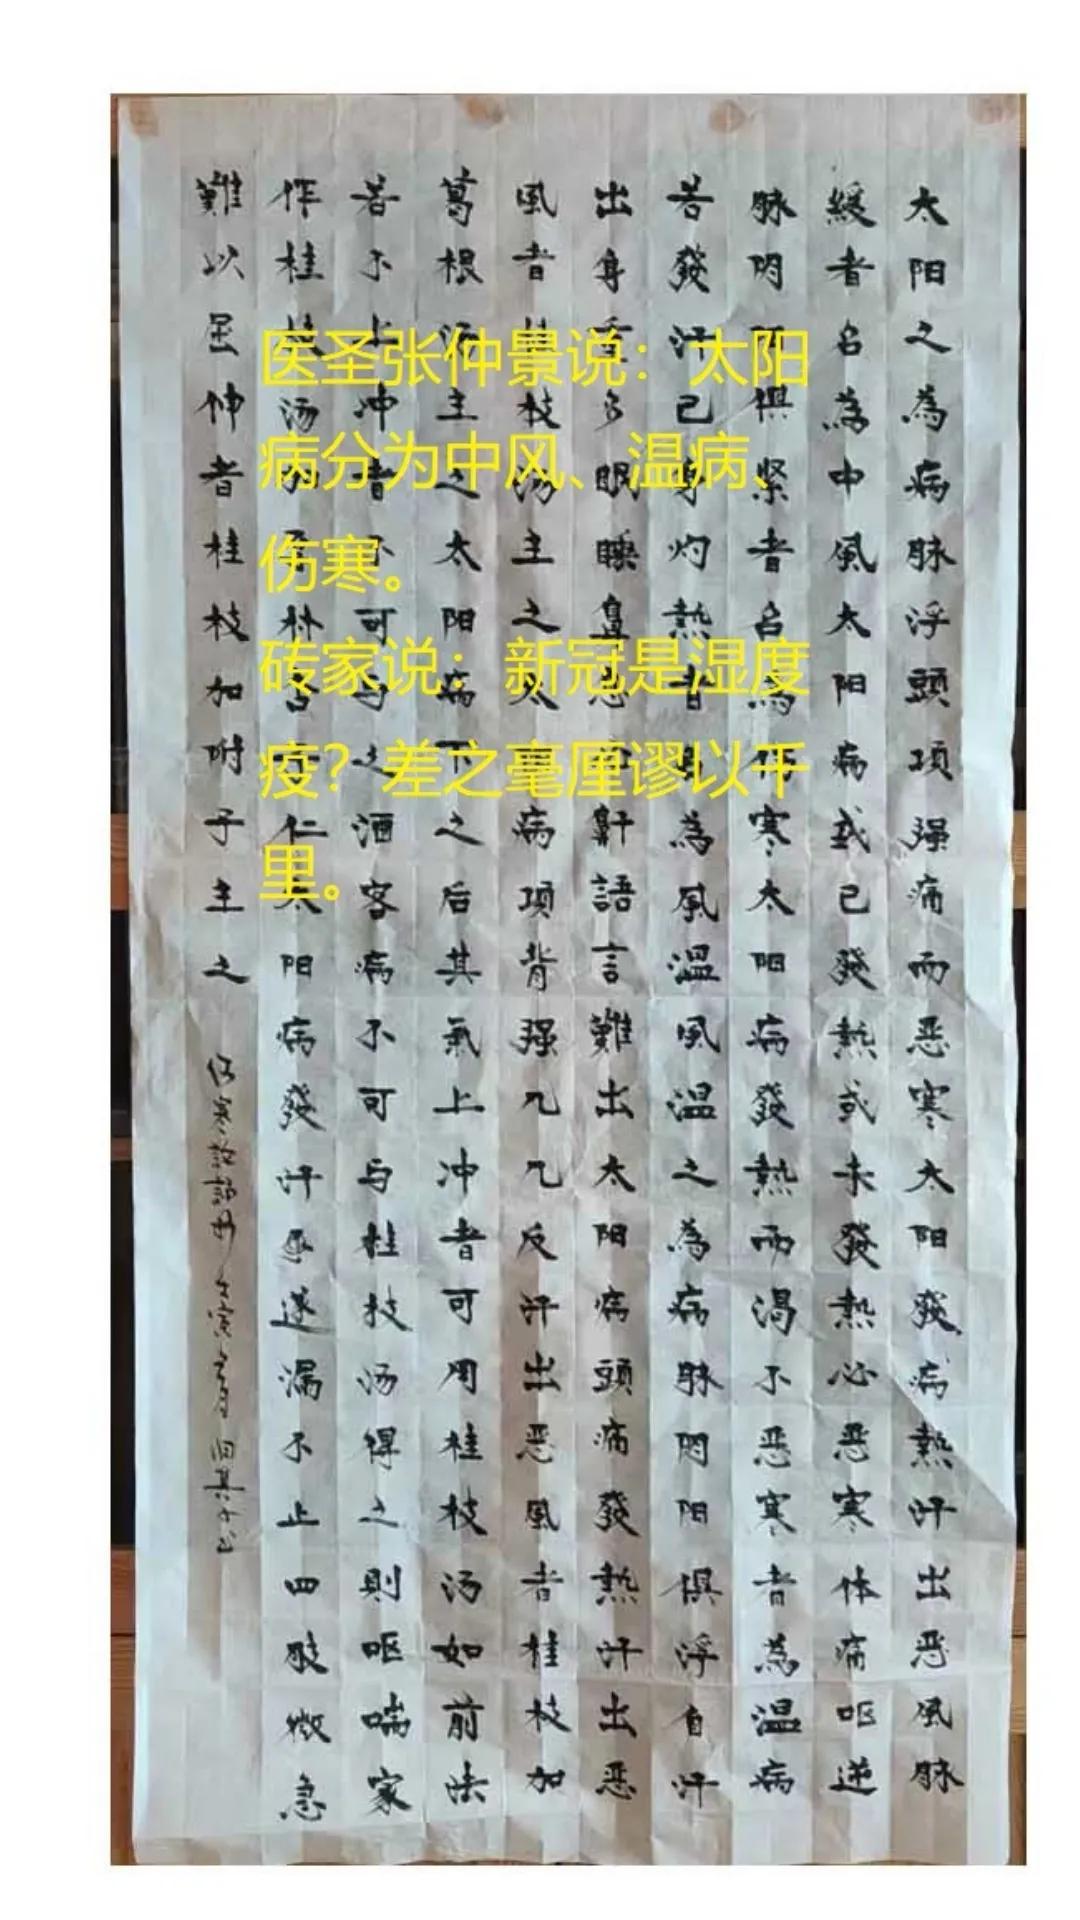 医圣张仲景说：太阳
病分为中风、温病、
伤寒。
砖家说：新冠是湿度
疫？差之毫厘谬以千
里。
太阳之為病脉浮頭項强痛而恶寒太阳發病熱汗出恶風脉
緩者名為中風太阳病或已發熱或未發熱必恶寒体痛呕逆
脉阴阳俱紧者名為伤寒太阳病發熱而渴不恶寒者為温病
若發汗已身灼熱者為風温風温之為病脉阴阳俱浮自汗
出身重多眠睡鼻息鼾語言難出太阳病頭痛發熱汗出恶
風者桂枝汤主之太病項背强几几反汗出恶風者桂枝加
葛根汤主之太阳病下之后其氣上冲者可用桂枝汤如前法
若不上冲者不可与之酒客病不可与桂枝汤得之則呕喘家
作桂枝汤朴杏仁太阳病發汗遂漏不止四肢微急
難以屈伸者桂枝加附子主之
伤寒 壬寅